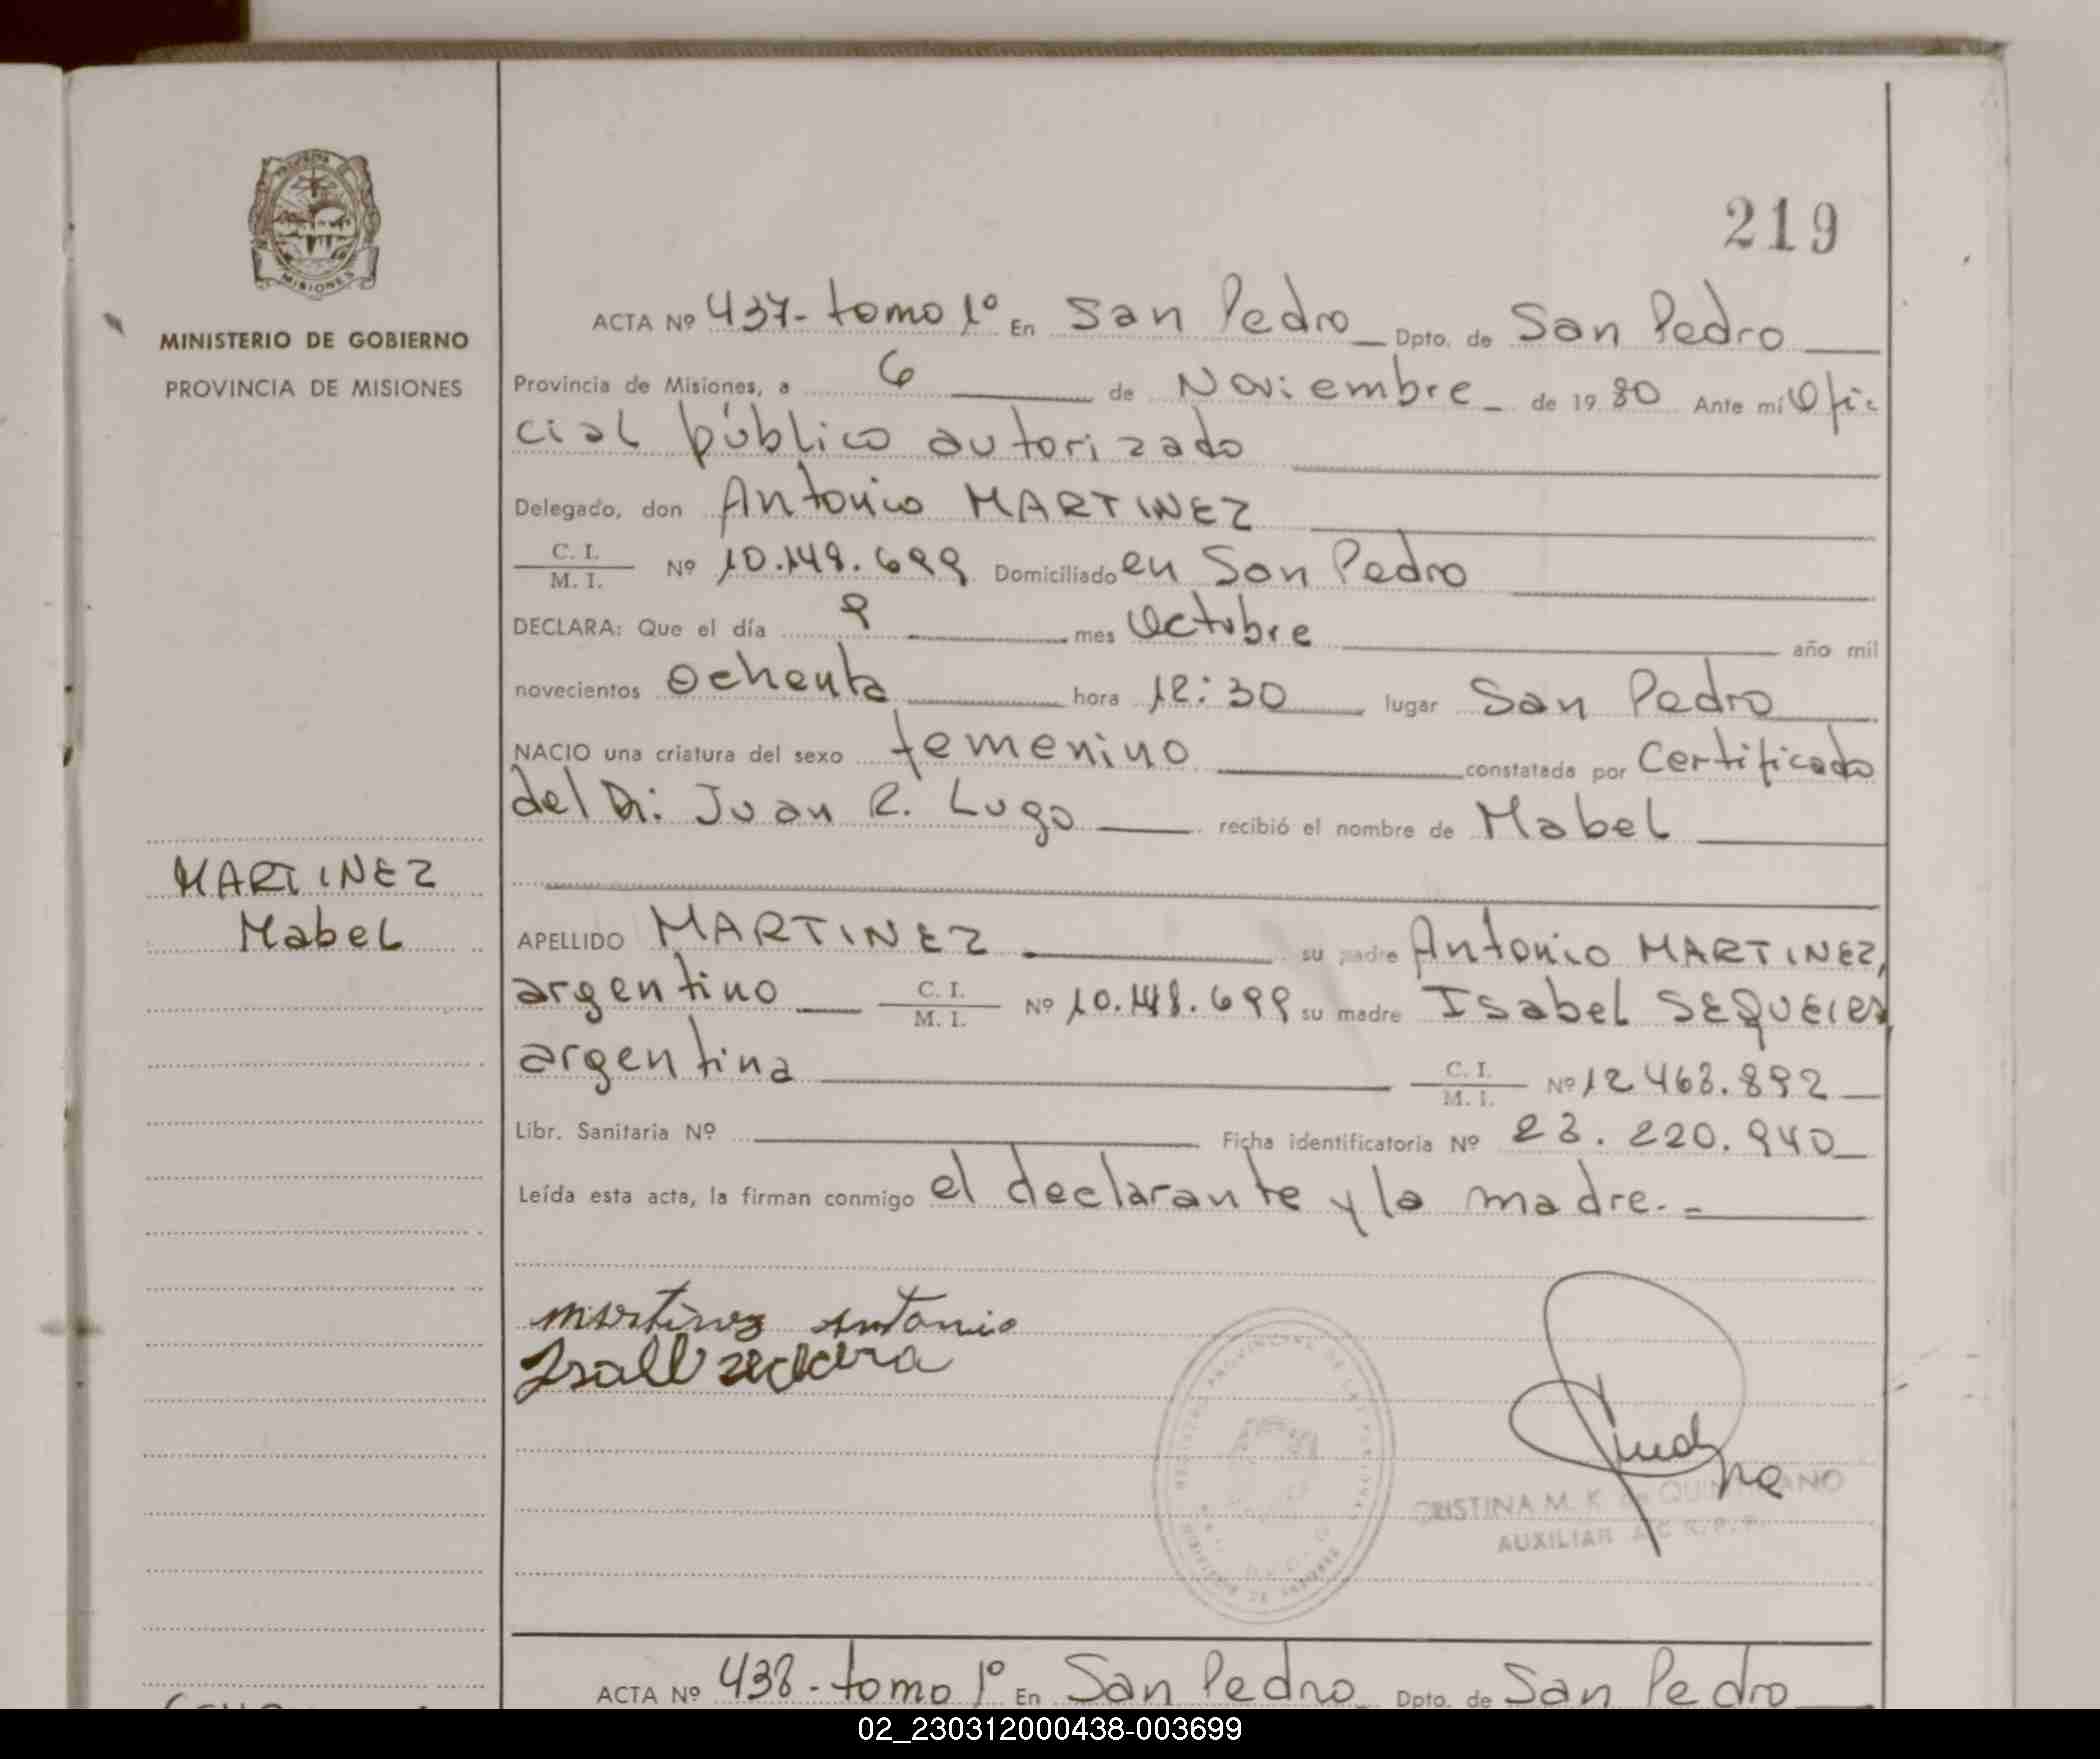 219
MISIONES
MINISTERIO DE GOBIERNO
PROVINCIA DE MISIONES
MARTINEZ
Mabel
ACTA Nº 437- tomo 1º En San Pedro Dpto. de San Pedro
Provincia de Misiones, a 6 de Noviembre de 19 80 Ante mí Ofi-
cial público autorizado
Delegado, don Antonio MARTINEZ
C. I.
M. I. Nº 10.148.699 Domiciliado en San Pedro
DECLARA: Que el día 9 mes Octubre año mil
novecientos ochenta hora 12:30 lugar San Pedro
NACIO una criatura del sexo femenino constatada por Certificado
del Dr. Juan R. Lugo recibió el nombre de Mabel
APELLIDO MARTINEZ su padre Antonio MARTINEZ,
argentino C. I.
M. I. Nº 10.148.699 su madre Isabel
argentina C. I.
M. I. Nº 12 463.892
Libr. Sanitaria Nº Ficha identificatoria Nº 23.220.940
Leída esta acta, la firman conmigo el declarante y la madre.-
Martinez Antonio
CRISTINA M. K. de
AUXILIAR
ACTA Nº 438- tomo 1º En San Pedro Dpto. de San Pedro
02_230312000438-003699